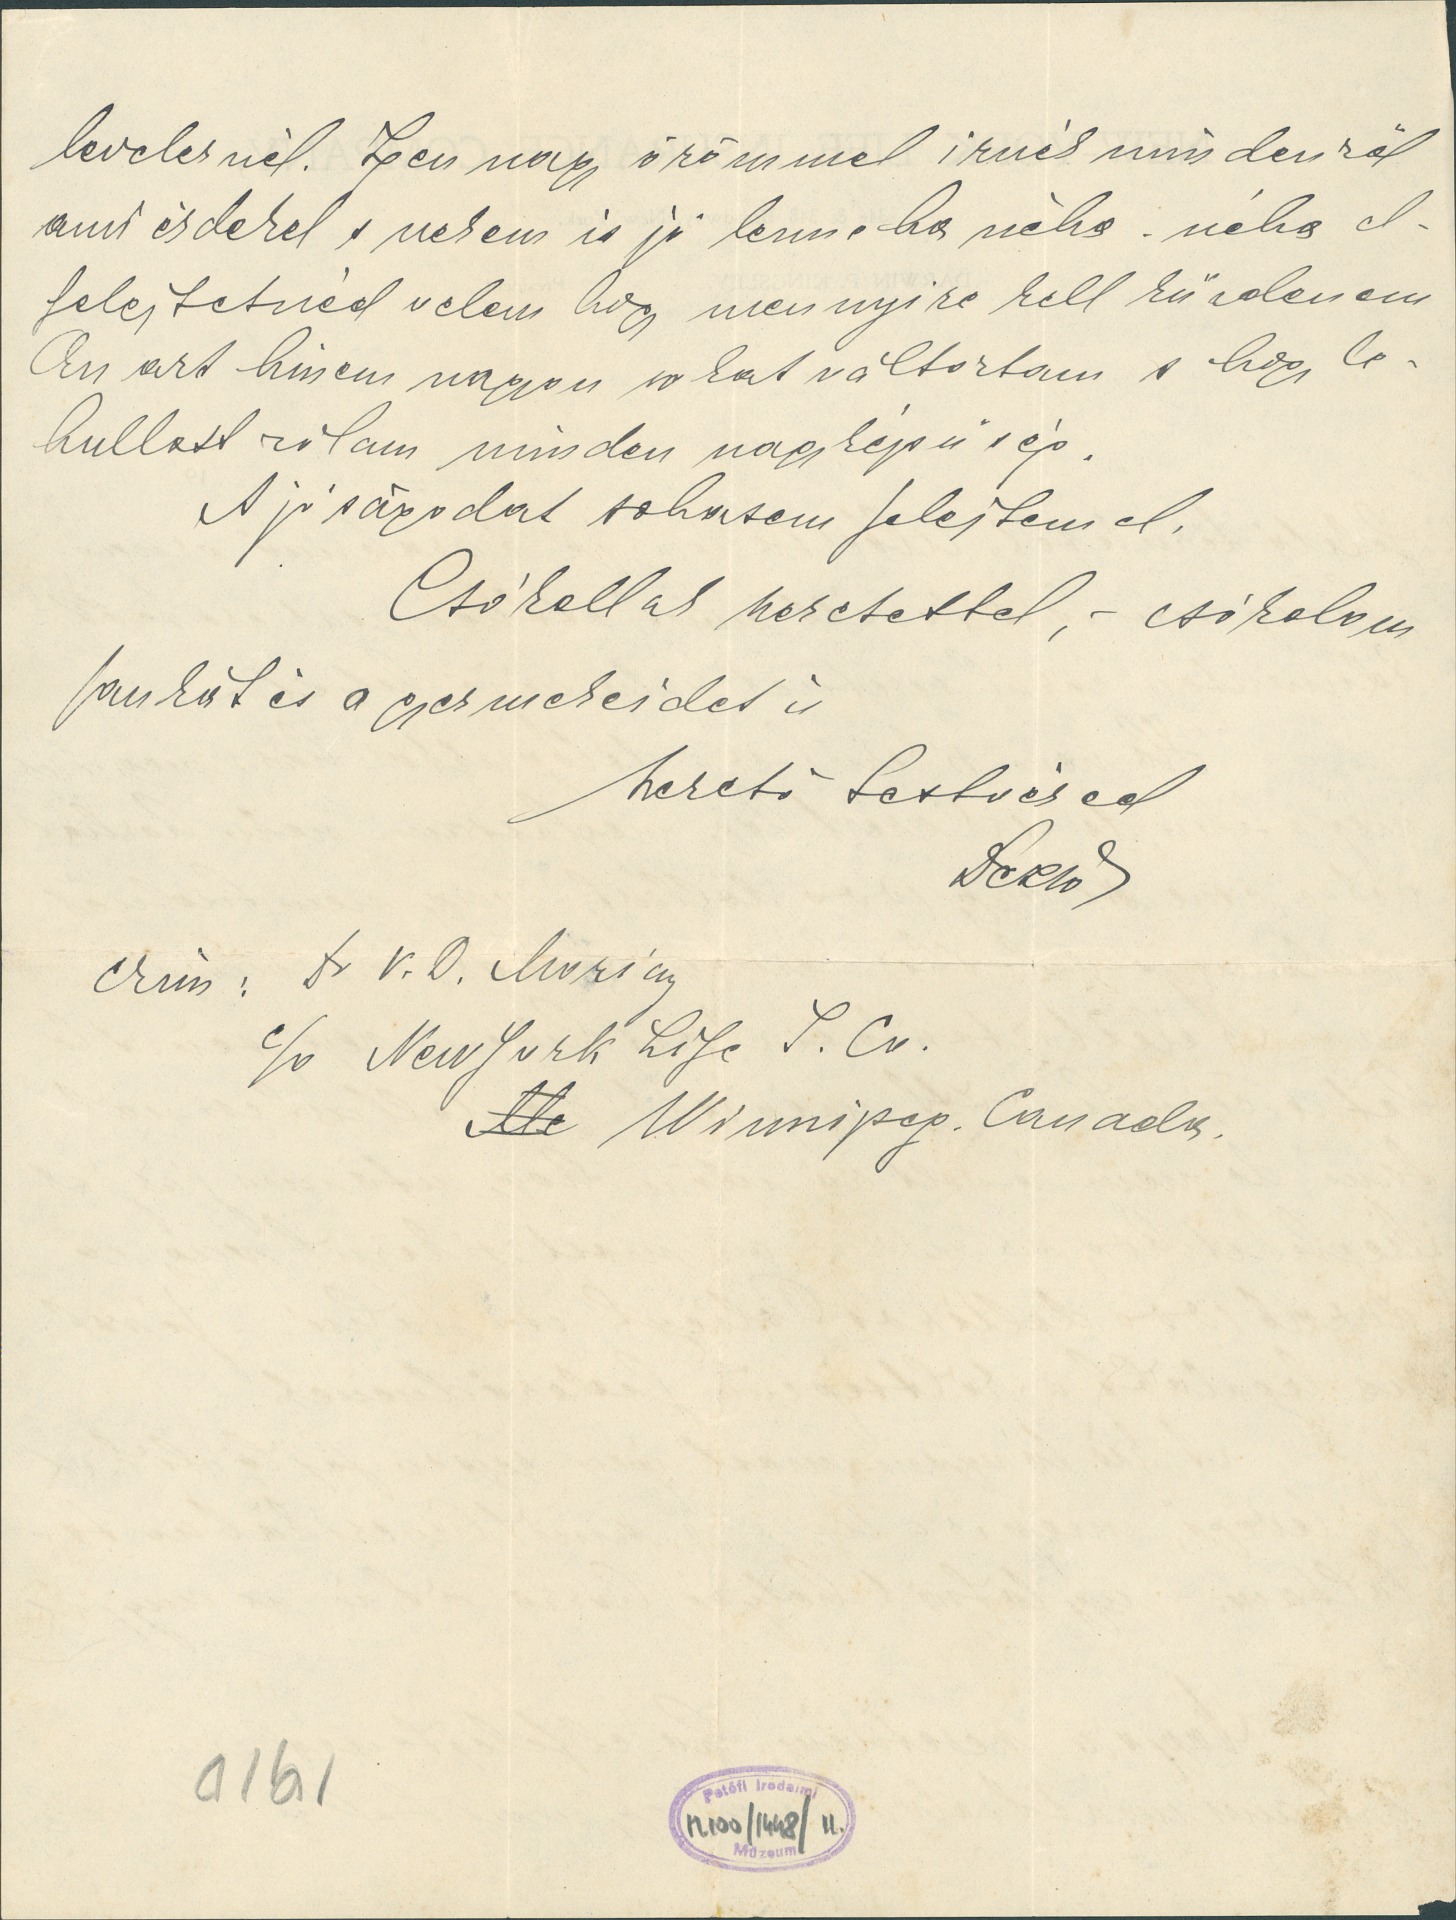 leveleznél. Igen nagy örömmel irnék mindenről
ami érdekel s nekem is jó lenne ha néha - néha el-
felejtetnéd velem hogy mennyire kell küzdenem
Én azt hiszem nagyon sokat változtam s hogy le-
hullott rólam minden nagyképüség.
A jóságodat sohasem felejtem el.
Csókollak szeretettel, - csókolom
Jankát és a gyermekeidet is
szerető testvéred
Dezső
Czim: Dr V. D. Moricz
c/o New York Life I. Co.
Winnipeg. Canada.
a/b/
Petőfi Irodalmi
M.100/1448/11.
Múzeum